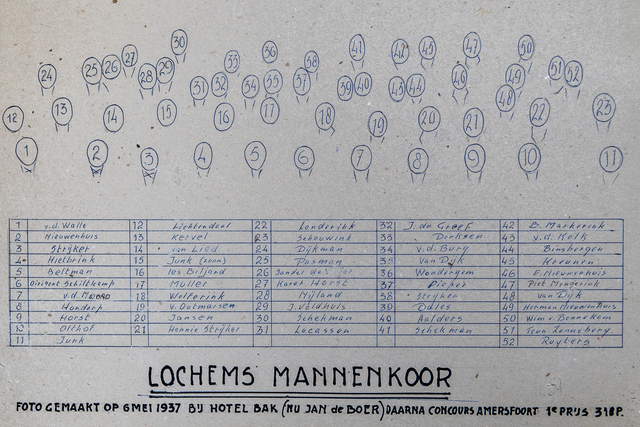 30
27 33 36 58 41 42 45 47 50
24 25 26 28 29 31 32 34 35 37 39 40 43 44 46 49 51 52
12 13 14 15 16 17 18 19 20 21 48 22 23
1 2 3 4 5 6 7 8 9 10 11
1 v.d. Walle 12 22 Lenderink 32 J. de Greef 42 B. Markerink
2 Nieuwenhuis 13 Kervel 23 Schouwink 33 Derksen 43 v.d. Kolk
3 Strijker 14 van Lied 24 Dijkman 34 v.d. Burg 44 Binsbergen
4 Hietbrink 15 Junk (zoon) 25 Posman 35 van Dijk 45
5 Beltman 16 les Biljard 26 36 46 F. Nieuwenhuis
6 Dirigent Schiltkamp 17 Muller 27 Karel Horst 37 Pieper 47 Piet
7 v.d. Noord 18 Welferink 28 Nijland 58 Strijker 48 van Dijk
8 19 v. Ootmarsen 29 J. Velthuis 39 49 Herman
9 Horst 20 Jansen 30 Schekman 40 Aalders 50 Wim v. Bennekom
10 Olthof 21 Hennie Strijker 31 Lucassen 41 Schekman 51 Teun Zonneberg
11 Junk 52 Ruyters
LOCHEMS MANNENKOOR
FOTO GEMAAKT OP 6 MEI 1937 BIJ HOTEL BAK (NU JAN de BOER) DAARNA CONCOURS AMERSFOORT 1e PRIJS 318P.